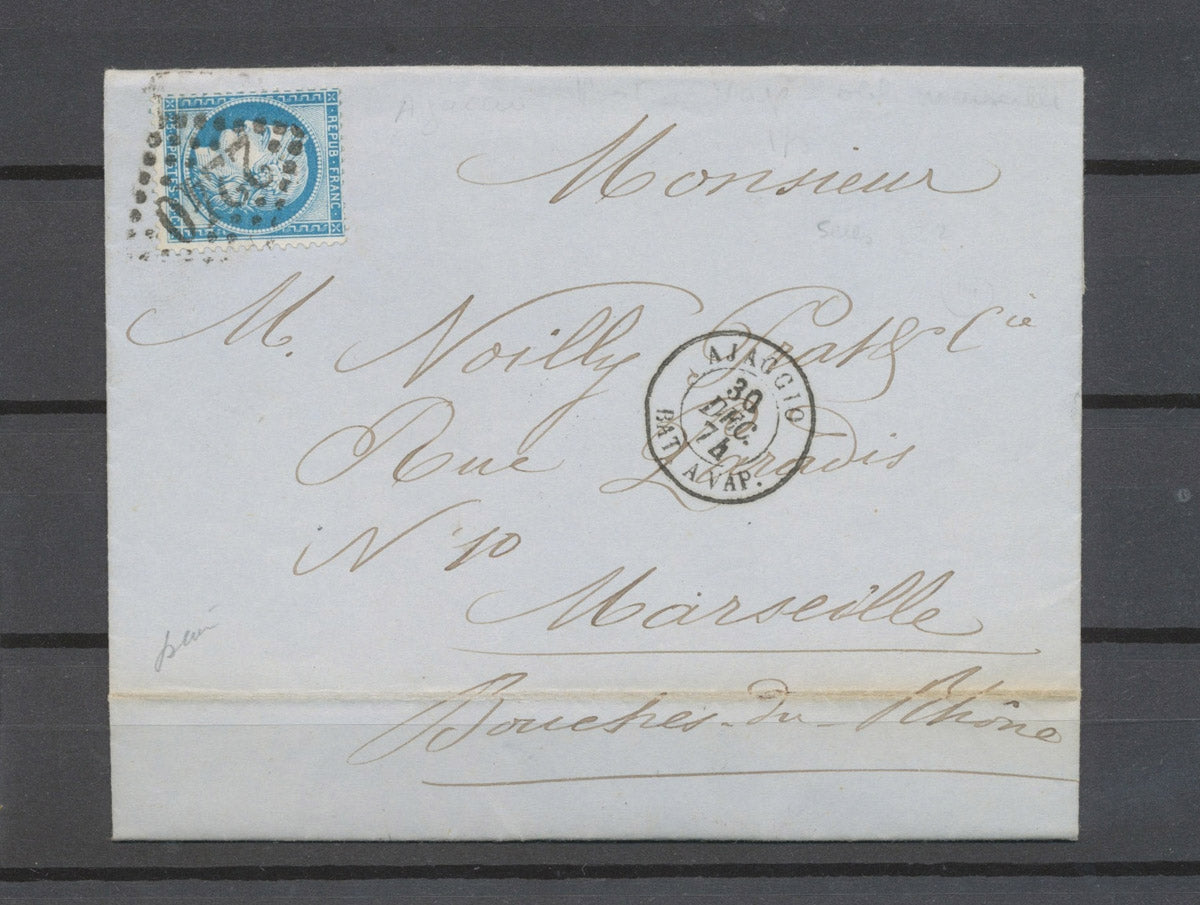 REPUB · FRANC ·
POSTES
Monsieur
M. Noilly Prat & Cie
Rue Paradis
N° 10
Marseille
Bouches-du-Rhône
AJACCIO
30
DEC.
74
BAT. A VAP.